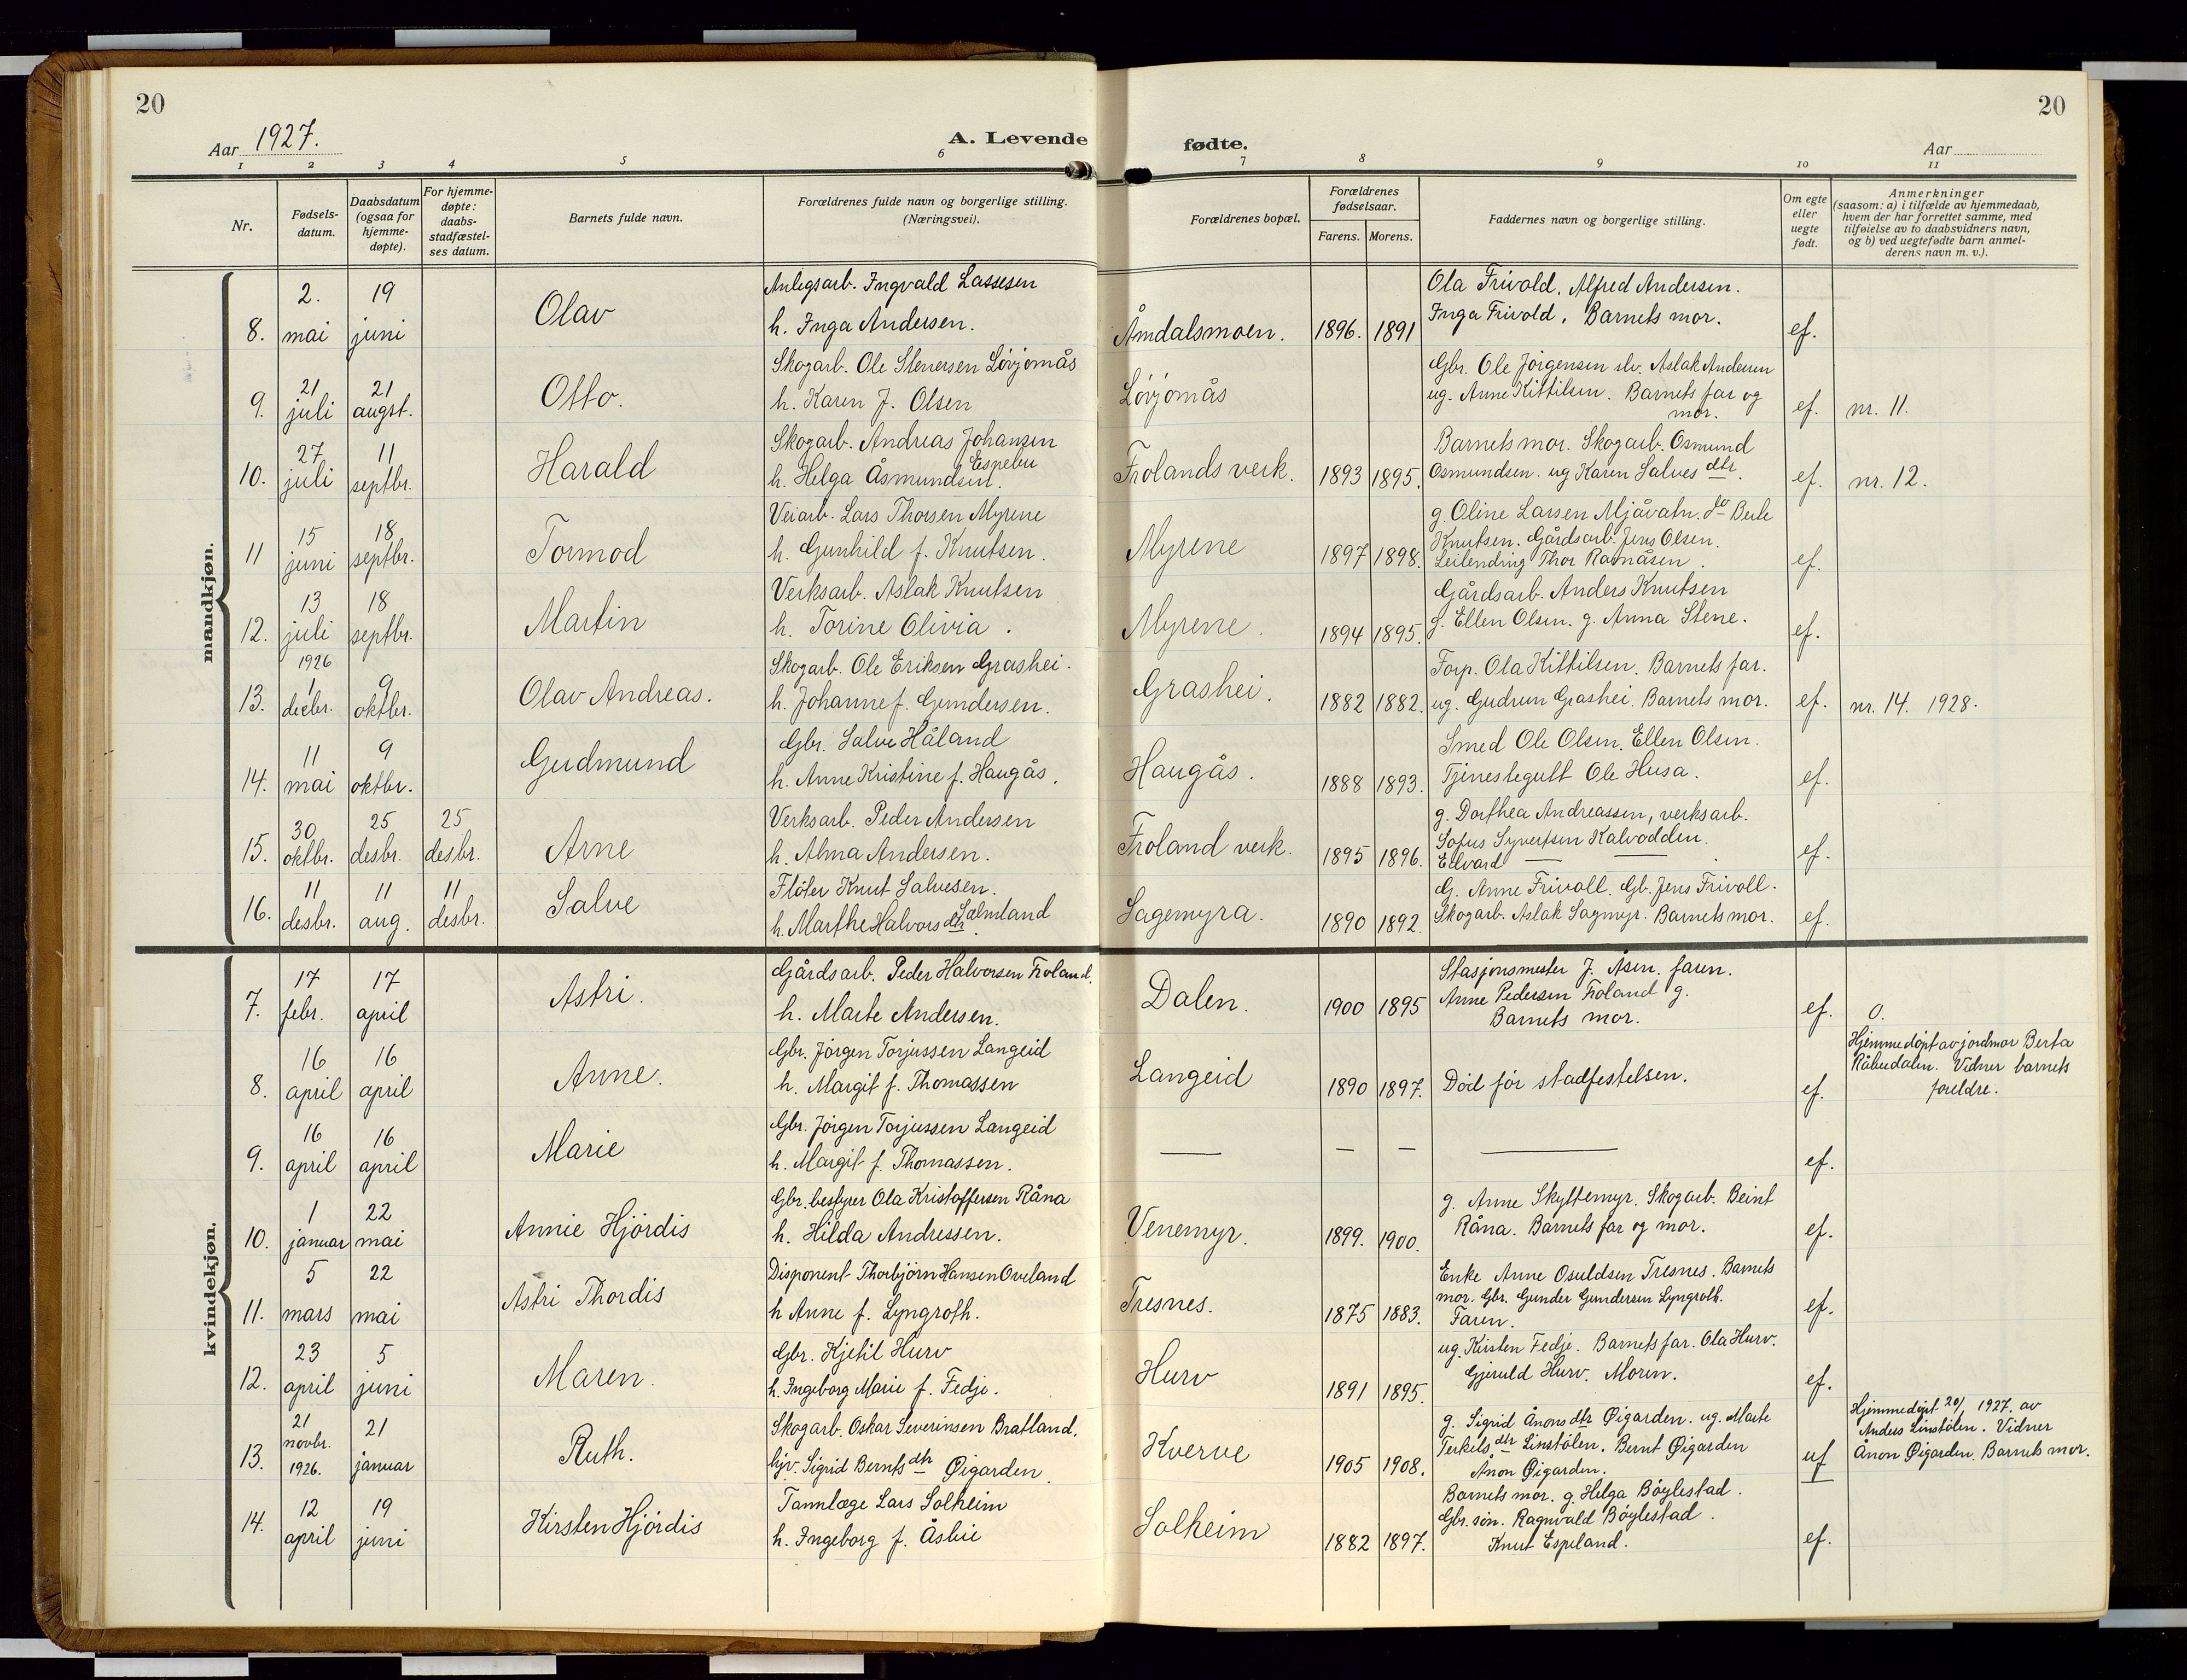 20
20
Aar 1927.
A. Levende fødte.
Aar
1 2 3 4 5 6 7 8 9 10 11
Nr.
Fødsels-
datum.
Daabsdatum
(ogsaa for
hjemme-
døpte).
For hjemme-
døpte:
daabs-
stadfæstel-
ses datum.
Barnets fulde navn.
Forældrenes fulde navn og borgerlige stilling.
(Næringsvei).
Forældrenes bopæl.
Forældrenes
fødselsaar.
Farens. Morens.
Faddernes navn og borgerlige stilling.
Om egte
eller
uegte
født.
Anmerkninger
(saasom: a) i tilfælde av hjemmedaab,
hvem der har forrettet samme, med
tilføielse av to daabsvidners navn,
og b) ved uegtefødte barn anmel-
derens navn m. v.).
mandkjøn.
8. 2. mai 19 juni Olav
Anlegsarb. Ingvald Lassesen
h. Inga Andersen.
Åmdalsmoen. 1896. 1891
Ola Frivold. Alfred Andersen.
Inga Frivold. Barnets mor.
ef.
9. 21 juli 21 augst. Otto.
Skogarb. Ole Stenersen Løvjomås
h. Karen J. Olsen
Løvjomås
Gbr. Ole Jörgensen slv. Aslak Andersen
ug. Anne Kittilsen. Barnets far og
mor.
ef. nr. 11.
10. 27 juli 11 septbr. Harald
Skogarb. Andreas Johansen
Espebu
h. Helga Åsmundsen.
Frolands verk. 1893 1895.
Barnets mor. Skogarb. Osmund
Osmundsen. ug Karen Salves dtr.
ef. nr. 12.
11 15 juni 18 septbr. Tormod
Veiarb. Lars Thorsen Myrene
h. Gunhild f. Knutsen.
Myrene 1897 1898.
g. Oline Larsen Mjåvatn. do Berte
Knutsen. Gårdsarb. Jens Olsen.
Leilending Thor Ramåsen.
ef.
12. 13 juli 18 septbr. Martin
Verksarb. Aslak Knutsen
h. Torine Olivia.
Myrene. 1894 1895.
Gårdsarb. Anders Knutsen
g. Ellen Olsen. g. Anna Stene.
ef.
13. 1926 1 decbr. 9 oktbr. Olav Andreas.
Skogarb. Ole Eriksen Grashei.
h. Johanne f. Gundersen.
Grashei. 1882 1882.
Torp. Ola Kittilsen. Barnets far.
ug. Gudrun Grashei. Barnets mor.
ef. nr. 14. 1928.
14. 11 mai 9 oktbr. Gudmund
Gbr. Salve Håland
h. Anne Kristine f. Haugås.
Haugås. 1888 1893.
Smed Ole Olsen. Ellen Olsen.
Tjenestegutt Ole Husa.
ef.
15. 30 oktbr. 25 desbr. 25 desbr. Arne
Verksarb. Peder Andersen
h. Alma Andersen.
Froland verk. 1895 1896.
g. Dorthea Andreassen, verksarb.
Sofus Syvertsen Kalvodden.
Edvard — —
ef.
16. 11 desbr. 11 aug. 11 desbr. Salve
Fløter Knut Salvesen.
h. Marthe Halvors dtr Salmeland
Sagemyra. 1890 1892.
G. Anne Frivoll. Gb. Jens Frivoll.
Skogarb. Aslak Sagmyr. Barnets mor.
ef.
kvindekjøn.
7. 17 febr. 17 april Astri.
Gårdsarb. Peder Halvorsen Froland.
h. Marte Andersen.
Dalen. 1900 1895
Stasjonsmester J. Åsen. faren.
Anne Pedersen Froland g.
Barnets mor.
ef. 0.
8. 16 april 16 april Anne.
Gbr. Jörgen Torjussen Langeid
h. Margit f. Thomassen
Langeid 1890 1897.
Död för stadfestelsen.
ef.
Hjemmedöpt av jordmor Berta
Råbudalen. Vidner barnets
foreldre.
9. 16 april 16 april Marie
Gbr. Jörgen Torjussen Langeid
h. Margit f. Thomassen.
— — — —
ef.
10. 1 januar 22 mai Annie Hjördis
Gbr. bestyrer Ola Kristoffersen Råna
h. Hilda Andressen.
Venemyr. 1899. 1900.
g. Anne Skyttemyr. Skogarb. Beint
Råna. Barnets far og mor.
ef.
11. 5 mars 22 mai Astri Thordis
Disponent Thorbjörn Hansen Oveland
h Anne f. Lyngroth.
Tresnes. 1875 1883.
Enke Anne Osuldsen Tresnes. Barnets
mor. Gbr. Gunder Gundersen Lyngroth.
Faren.
ef.
12. 23 april 5 juni Maren.
Gbr. Kjetil Hurv
h. Ingeborg Marie f. Fedje.
Hurv 1891 1895.
ug. Kirsten Fedje. Barnets far. Ola Hurv.
Gjeruld Hurv. Moren.
ef.
13. 21 novbr. 1926. 21 januar Ruth.
Skogarb. Oskar Severinsen Bratland.
tjv. Sigrid Bernts dtr Øigarden.
Kverve 1905 1908.
g. Sigrid Ånons dtr Øigarden. ug. Marte
Terkels dtr Linstölen. Bernt Øigarden
Ånon Øigarden.
uf
Hjemmedöpt 20/1 1927. av
Anders Linstölen. Vidner
Ånon Øigarden. Barnets mor.
14. 12 april 19 juni Kirsten Hjördis
Tannlæge Lars Solheim
h. Ingeborg f. Åsbie
Solheim 1882 1897.
Barnets mor. g. Helga Böylestad.
Gbr. sön. Ragnvald Böylestad.
Knut Espeland.
ef.